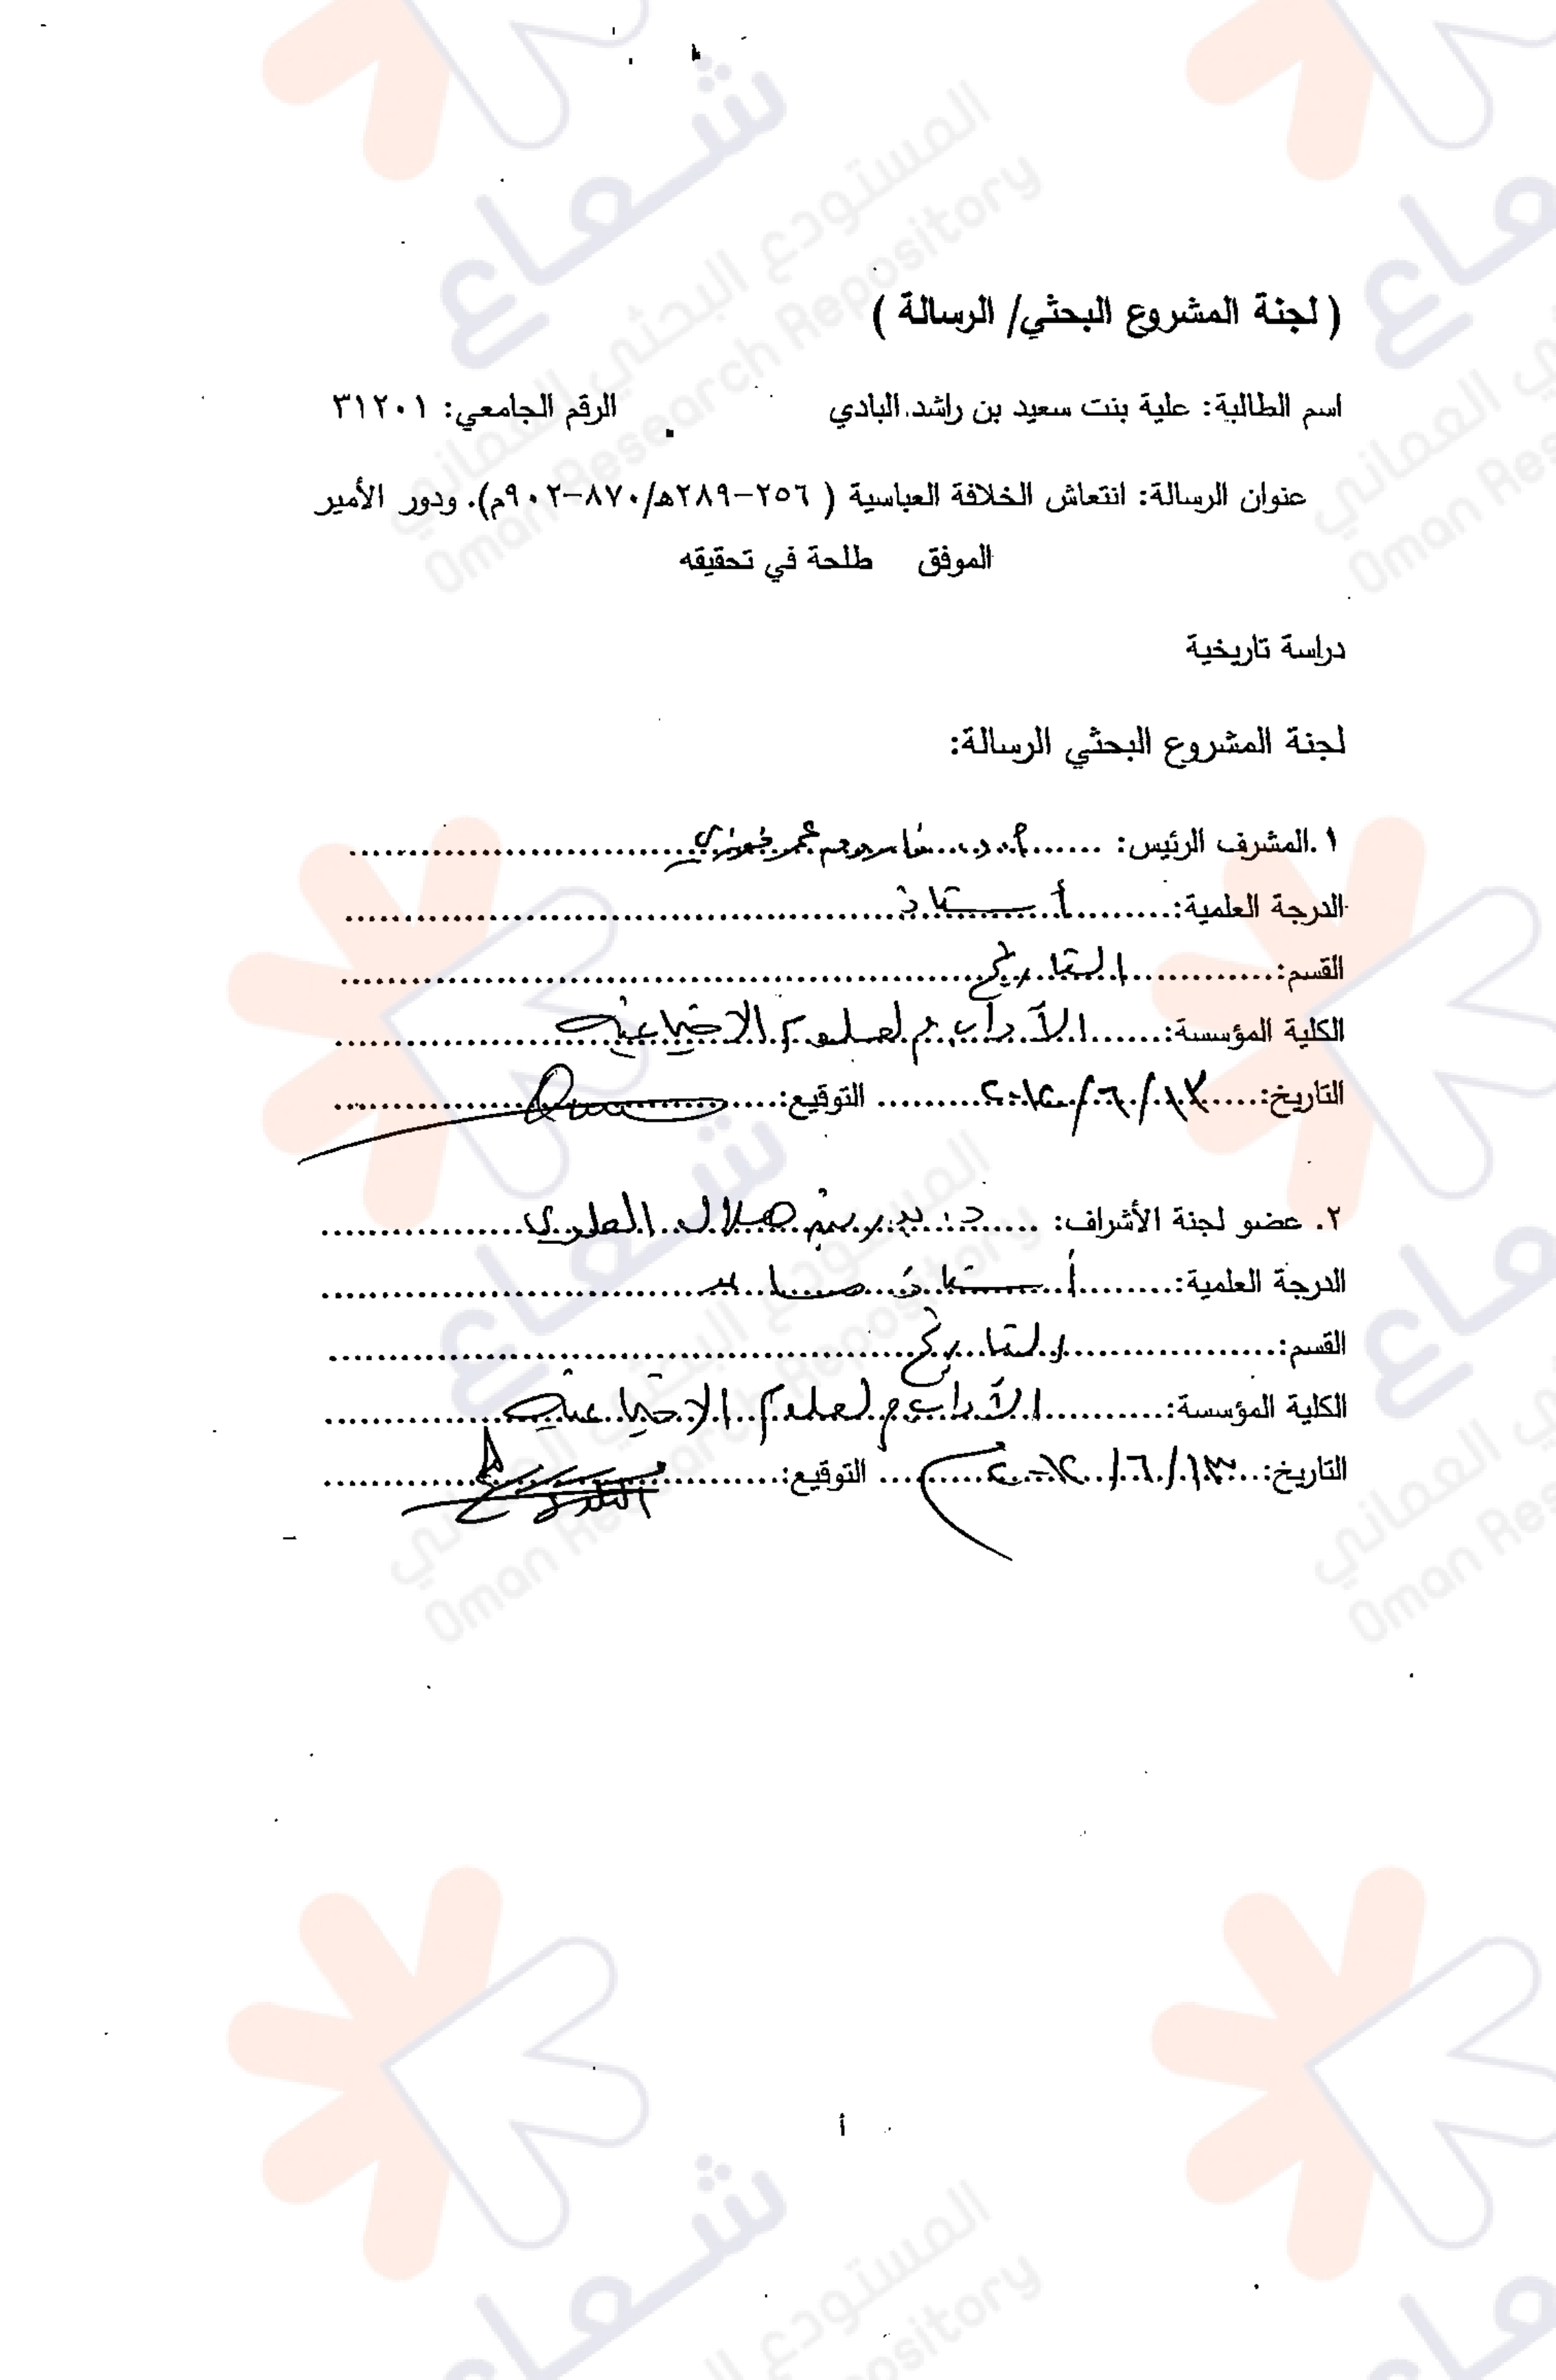 ( لجنة المشروع البحثي/ الرسالة )
اسم الطالبة: علية بنت سعيد بن راشد البادي الرقم الجامعي: ٣١٢٠١
عنوان الرسالة: انتعاش الخلافة العباسية ( ٢٥٦-٢٨٩هـ/٨٧٠-٩٠٢م). ودور الأمير
الموفق طلحة في تحقيقه
دراسة تاريخية
لجنة المشروع البحثي الرسالة:
١.المشرف الرئيس: أ.د. فاروق عمر فوزي
الدرجة العلمية: أستاذ
القسم: التاريخ
الكلية المؤسسة: الآداب والعلوم الاجتماعية
التاريخ: ١٣/٦/٢٠١٢ التوقيع:
٢. عضو لجنة الأشراف: د. بدر بن هلال العلوي
الدرجة العلمية: أستاذ مساعد
القسم: التاريخ
الكلية المؤسسة: الآداب والعلوم الاجتماعية
التاريخ: ١٣/٦/٢٠١٢ التوقيع:
أ
شعاع
المستودع البحثي العماني
Oman Research Repository